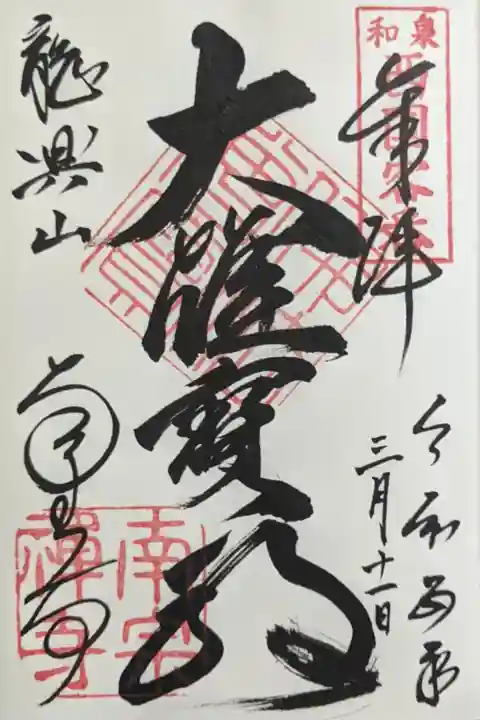 和泉
奉拝
令和四年
三月十一日
大雄寶殿
龍興山
南宗寺
南宗
禪寺